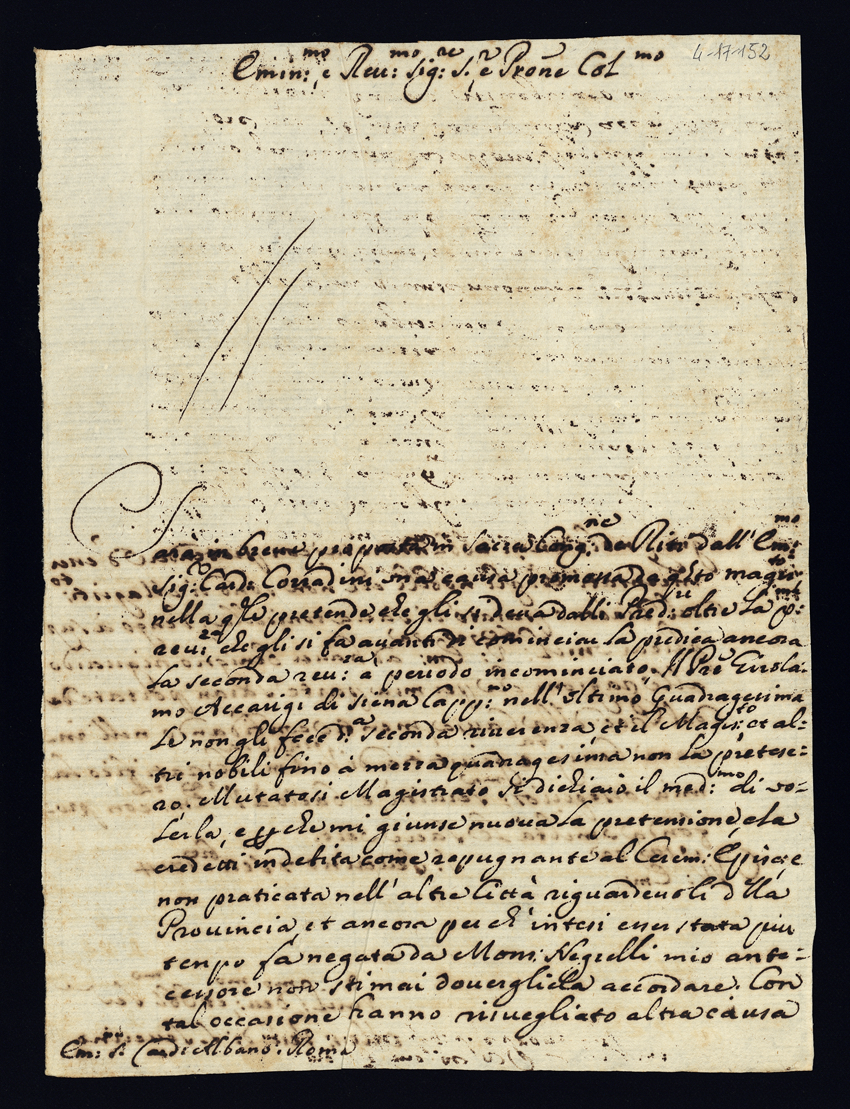 4-17-152
Emin:mo, e Reu:mo Sig:re S.r e Prone Col:mo
Sarà in breve proposta in Sacra Cong:ne de Riti dall' Em:mo
Sig:r Card: Corradini causa promossa da q.sto magis:to
nella q.le pretende che gli si deva dalli Pred:ri oltre la p:ma
reu:za, che gli si fa avanti di cominciar la predica ancora
la seconda reu:za a periodo incominciato. Il Pre Girola-
mo Accarigi di Siena Capp:no nell' ultimo Quadragesima
le non gli fece d:a seconda riverenza, et il Magis:to, et al-
tri nobili fino à mezza quadragesima non la pretese-
ro. Mutatosi Magistrato si dichiarò il med:mo di vo-
lerla, e p che mi giunse nuova la pretensione, e la
credetti indebita come repugnante al Cerem: Episc: e
non praticata nell' altre Città riguardevoli dlla
Provincia, et ancora per ch' intesi esser stata più
tenpo fa negata da Mons: Negrelli mio ante-
cessore non stimai dovergliela accordare. Con
tal occasione hanno risvegliato altra causa
Em: S. Card: Albano: Roma